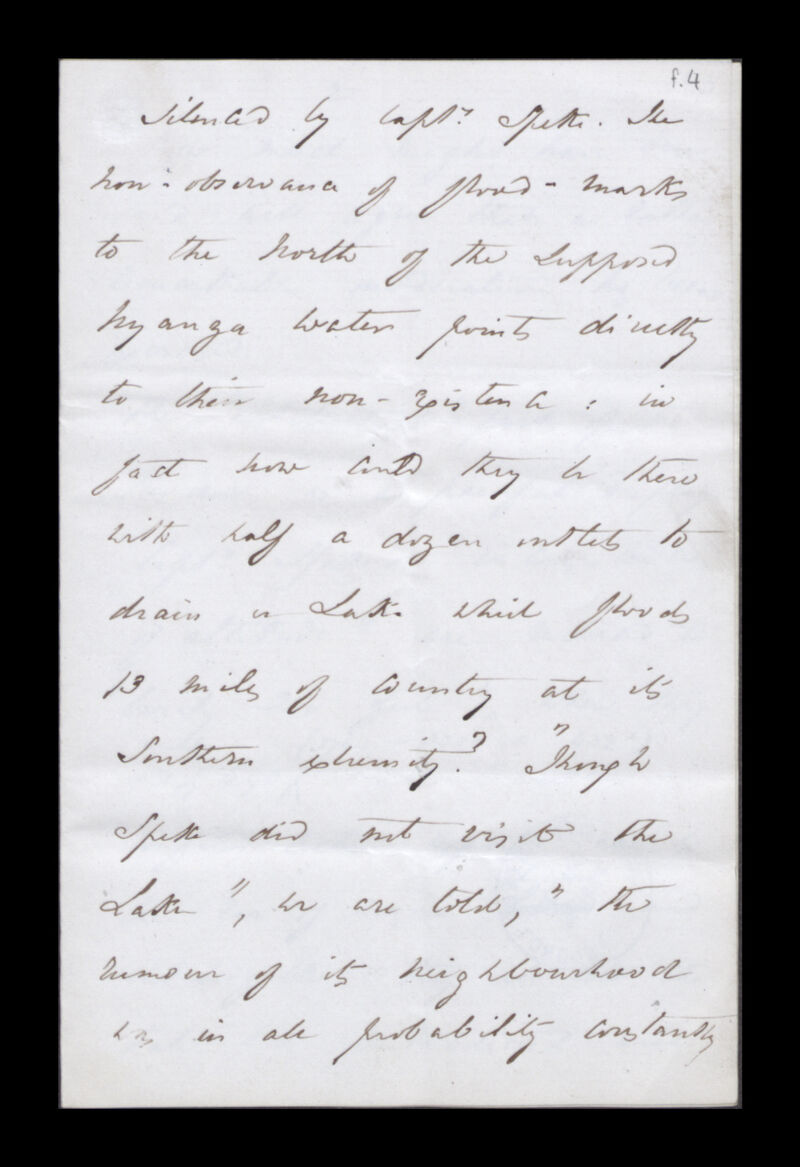 f.4
silenced by Capt. Speke. The
non-observance of flood-marks
to the North of the supposed
Nyanza waters points directly
to their non-existence : in
fact how could they be there
with half a dozen outlets to
drain a Lake which floods
13 miles of country at its
Southern extremity? "Though
Speke did not visit the
Lake", we are told, "the
rumour of its neighbourhood
was in all probability constantly